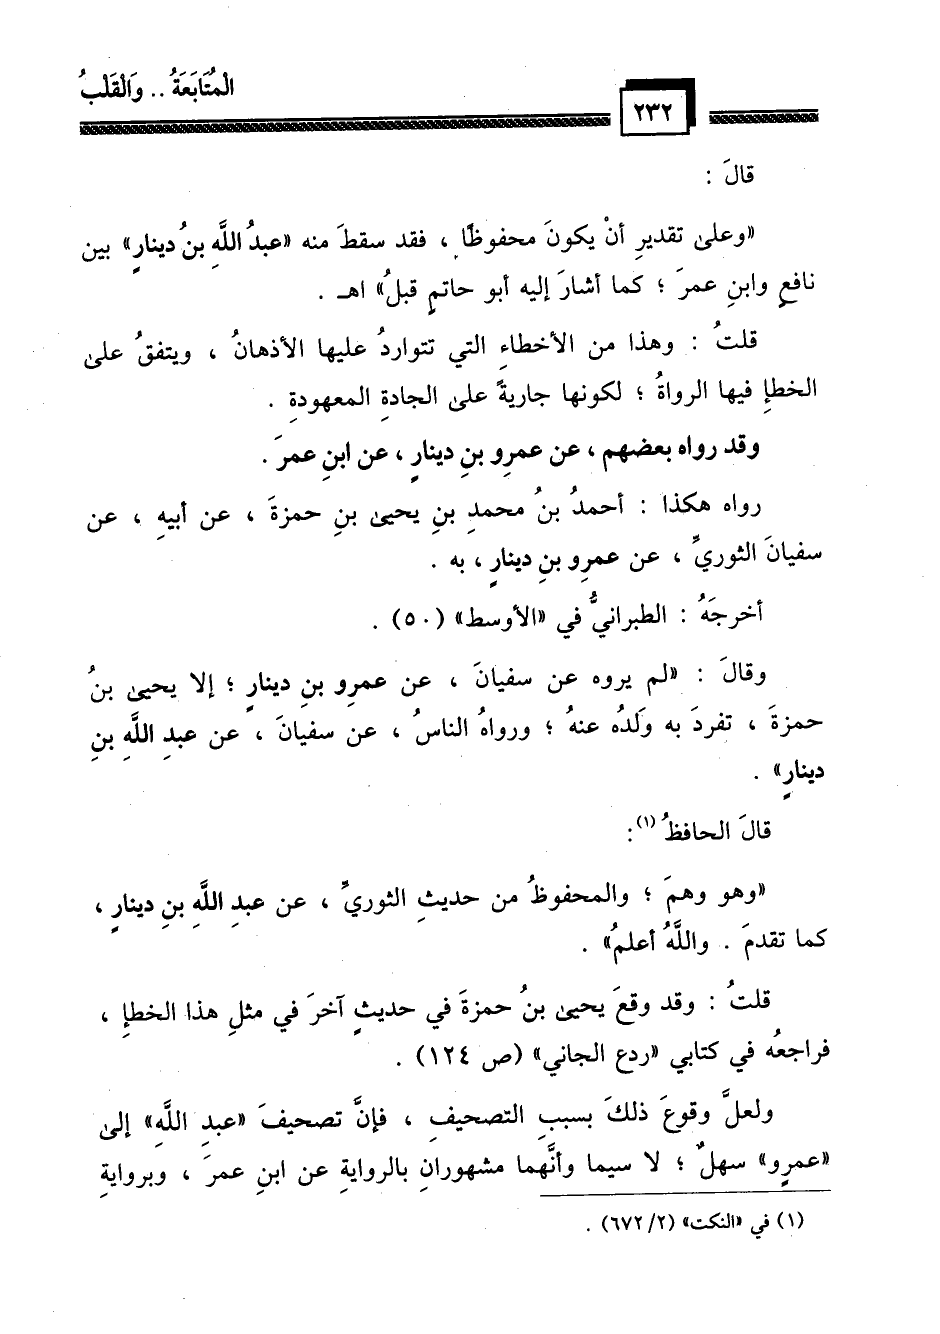 الْمُتَابَعَةُ .. وَالْقَلْبُ
٢٣٢
قالَ :
«وعلىٰ تقديرِ أنْ يكونَ محفوظًا ، فقد سقطَ منه «عبدُ اللَّهِ بنُ دينارٍ» بين
نافعٍ وابنِ عمرَ ؛ كما أشارَ إليه أبو حاتمٍ قبلُ» اهـ .
قلتُ : وهذا من الأخطاءِ التي تتواردُ عليها الأذهانُ ، ويتفقُ علىٰ
الخطإِ فيها الرواةُ ؛ لكونها جاريةً علىٰ الجادةِ المعهودةِ .
وقد رواه بعضهم ، عن عمرِو بنِ دينارٍ ، عن ابنِ عمرَ .
رواه هكذا : أحمدُ بنُ محمدِ بنِ يحيىٰ بنِ حمزةَ ، عن أبيهِ ، عن
سفيانَ الثوريِّ ، عن عمرِو بنِ دينارٍ ، به .
أخرجَهُ : الطبرانيُّ في «الأوسط» (٥٠) .
وقالَ : «لم يروه عن سفيانَ ، عن عمرِو بنِ دينارٍ ؛ إلا يحيىٰ بنُ
حمزةَ ، تفردَ به ولَدُه عنهُ ؛ ورواهُ الناسُ ، عن سفيانَ ، عن عبدِ اللَّهِ بنِ
دينارٍ» .
قالَ الحافظُ (١):
«وهو وهمَ ؛ والمحفوظُ من حديثِ الثوريِّ ، عن عبدِ اللَّهِ بنِ دينارٍ ،
كما تقدمَ . واللَّهُ أعلمُ» .
قلتُ : وقد وقعَ يحيىٰ بنُ حمزةَ في حديثٍ آخرَ في مثلِ هذا الخطإِ ،
فراجعُه في كتابي «ردع الجاني» (ص ١٢٤) .
ولعلَّ وقوعَ ذلكَ بسببِ التصحيفِ ، فإنَّ تصحيفَ «عبدِ اللَّهِ» إلىٰ
«عمرٍو» سهلٌ ؛ لا سيما وأنَّهما مشهورانِ بالروايةِ عن ابنِ عمرَ ، وبروايةِ
(١) في «النكت» (٦٧٢/٢) .